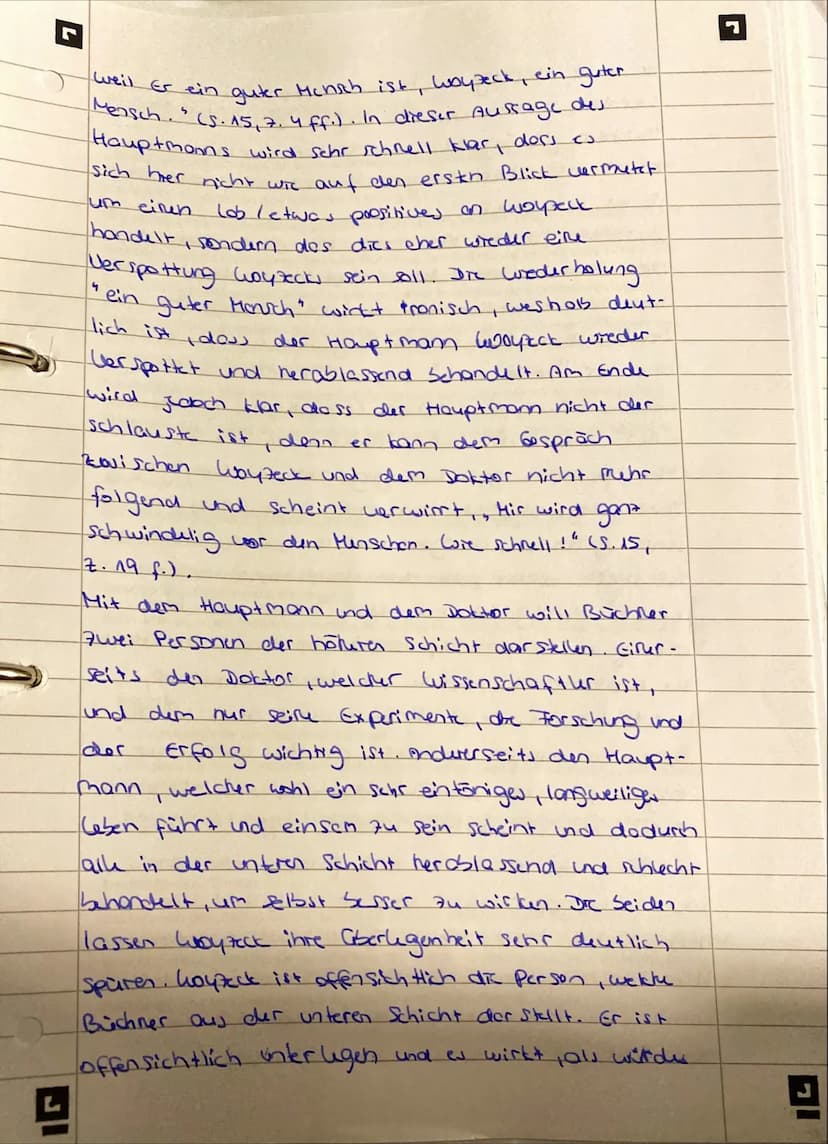 weil Er ein guter Mensch ist, Woyzeck, ein guter
Mensch." (S. 15, Z. 4 ff.). In dieser Aussage des
Hauptmanns wird sehr schnell klar, dass es
sich hier nicht wie auf den ersten Blick vermutet
um einen Lob/etwas poositives an Woyzeck
handelt, sondern das dies eher wieder eine
Verspottung Woyzecks sein soll. Die Wiederholung
"ein guter Mensch" wirkt ironisch, weshalb deut-
lich ist, dass der Hauptmann Woyzeck wieder
verspottet und herablassend behandelt. Am Ende
wird jedoch klar, dass der Hauptmann nicht der
schlauste ist, denn er kann dem Gespräch
zwischen Woyzeck und dem Doktor nicht mehr
folgend und scheint verwirrt, „Mir wird ganz
schwindelig vor den Menschen. Wie schnell!" (S. 15,
Z. 19 f.).
Mit dem Hauptmann und dem Doktor will Büchner
zwei Personen der höheren Schicht darstellen. Einer-
seits den Doktor, welcher Wissenschaftler ist,
und dem nur seine Experimente, die Forschung und
der Erfolg wichtig ist. Andererseits den Haupt-
mann, welcher wohl ein sehr eintöniges, langweiliges
Leben führt und einsam zu sein scheint und dadurch
alle in der unteren Schicht herablassend und schlecht
behandelt, um selbst besser zu wirken. Die beiden
lassen Woyzeck ihre Überlegenheit sehr deutlich
spüren. Woyzeck ist offensichtlich die Person, welche
Büchner aus der unteren Schicht darstellt. Er ist
offensichtlich unterlegen und es wirkt, als würde